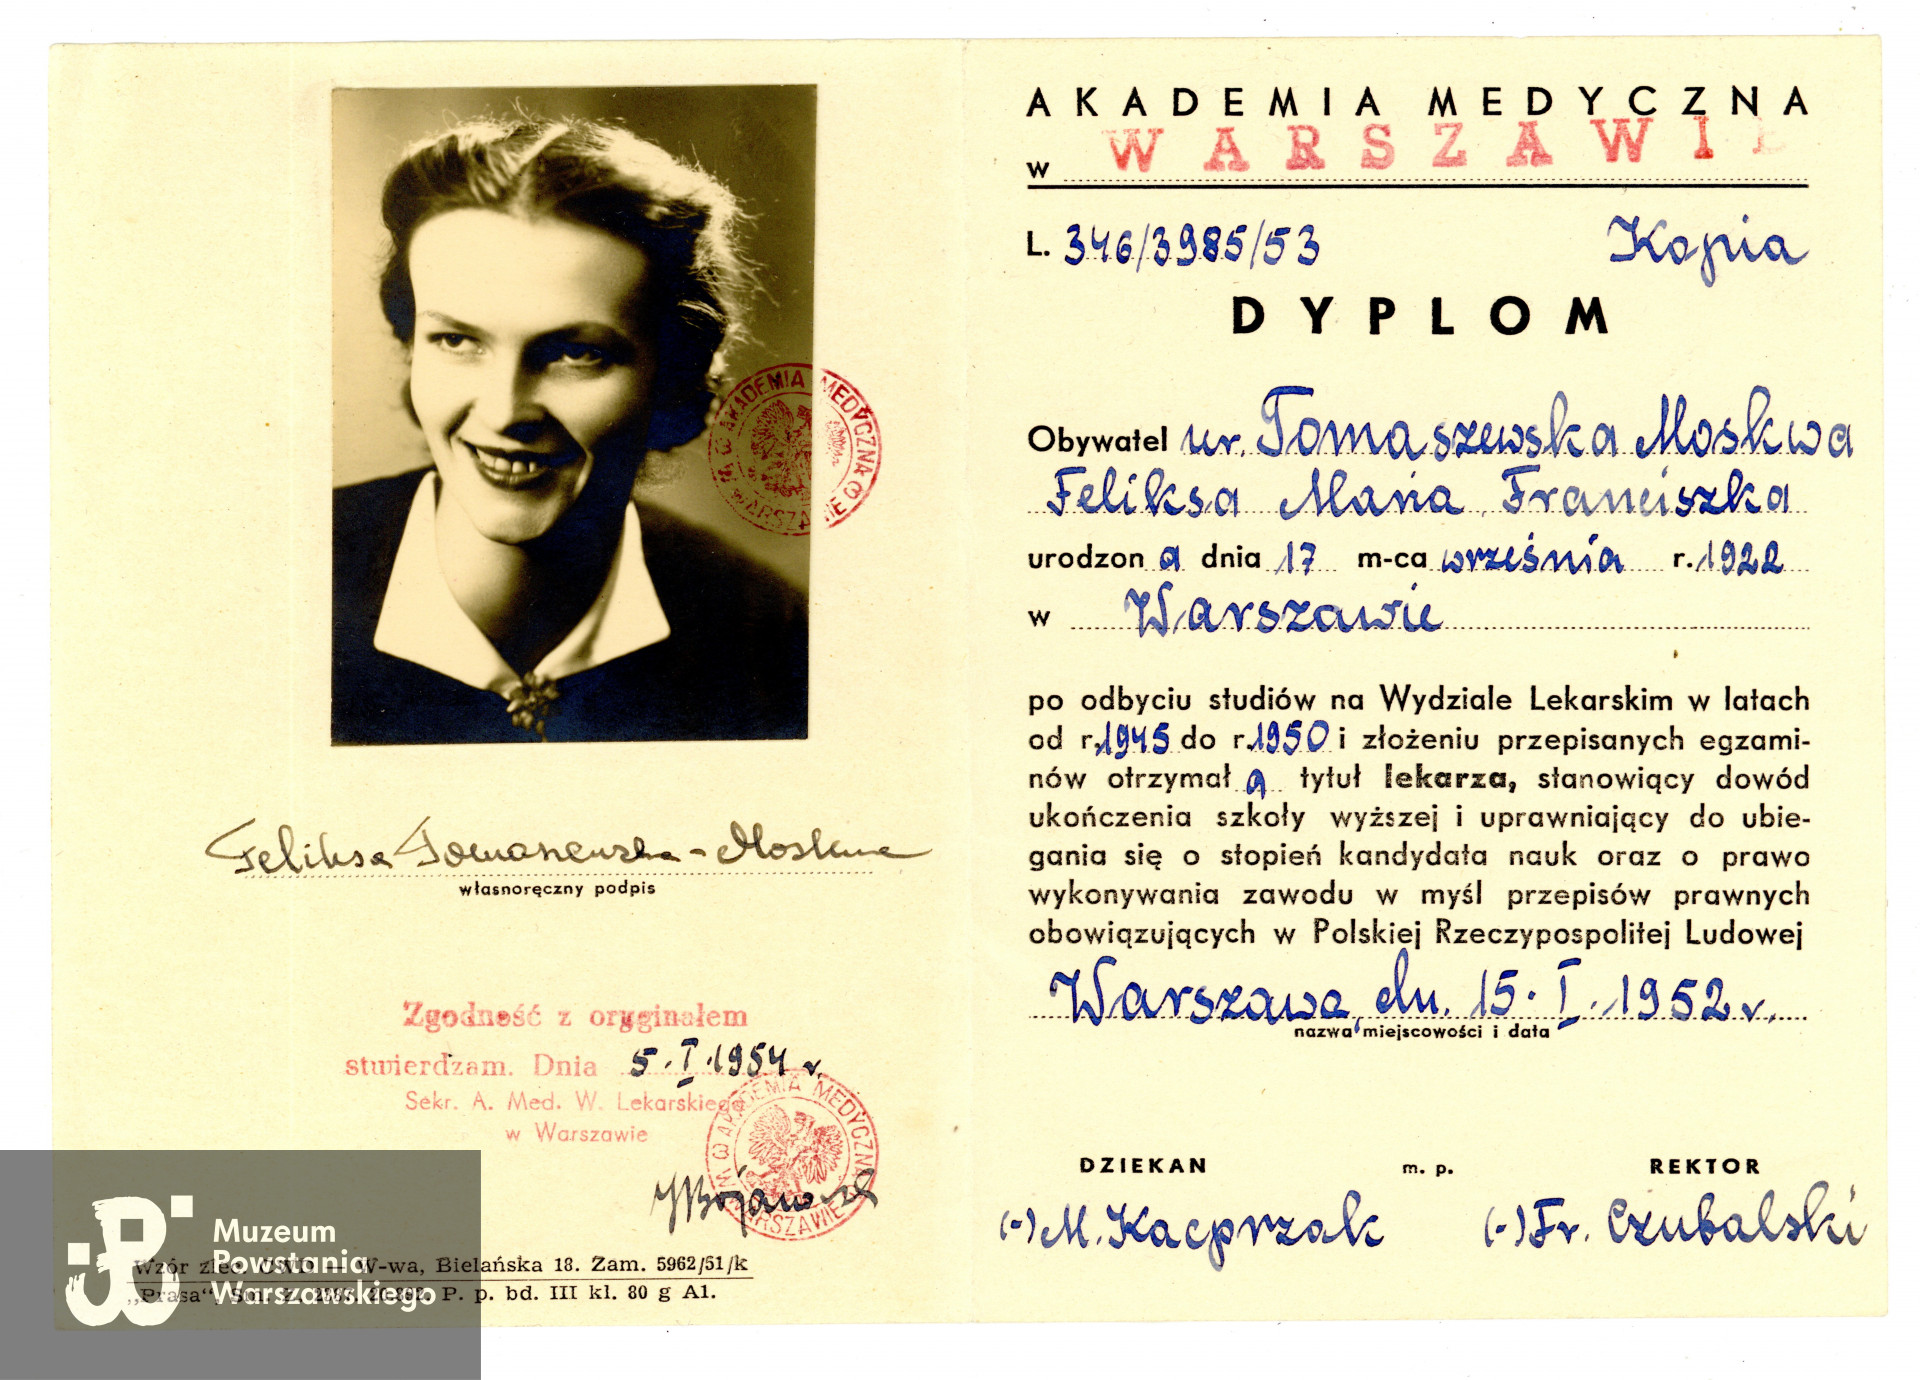 AKADEMIA MEDYCZNA
w WARSZAWIE
L. 346/3985/53 Kopia
DYPLOM
Obywatel ur. Tomaszewska Moskwa
Feliksa Maria Franciszka
urodzon a dnia 17 m-ca września r. 1922
w Warszawie
po odbyciu studiów na Wydziale Lekarskim w latach
od r. 1945 do r. 1950 i złożeniu przepisanych egzami-
nów otrzymał a tytuł lekarza, stanowiący dowód
ukończenia szkoły wyższej i uprawniający do ubie-
gania się o stopień kandydata nauk oraz o prawo
wykonywania zawodu w myśl przepisów prawnych
obowiązujących w Polskiej Rzeczypospolitej Ludowej
Warszawa, dn. 15. I. 1952 r.
nazwa miejscowości i data
DZIEKAN m. p. REKTOR
(-) M. Kacprzak (-) Fr. Czubalski
AKADEMIA MEDYCZNA W WARSZAWIE
Feliksa Tomaszewska-Moskwa
własnoręczny podpis
Zgodność z oryginałem
stwierdzam. Dnia 5. I. 1954 r.
Sekr. A. Med. W. Lekarskiego
w Warszawie
AKADEMIA MEDYCZNA W WARSZAWIE
Wzór W-wa, Bielańska 18. Zam. 5962/51/k
„Prasa“, P. p. bd. III kl. 80 g A1.
Muzeum
Powstania
Warszawskiego